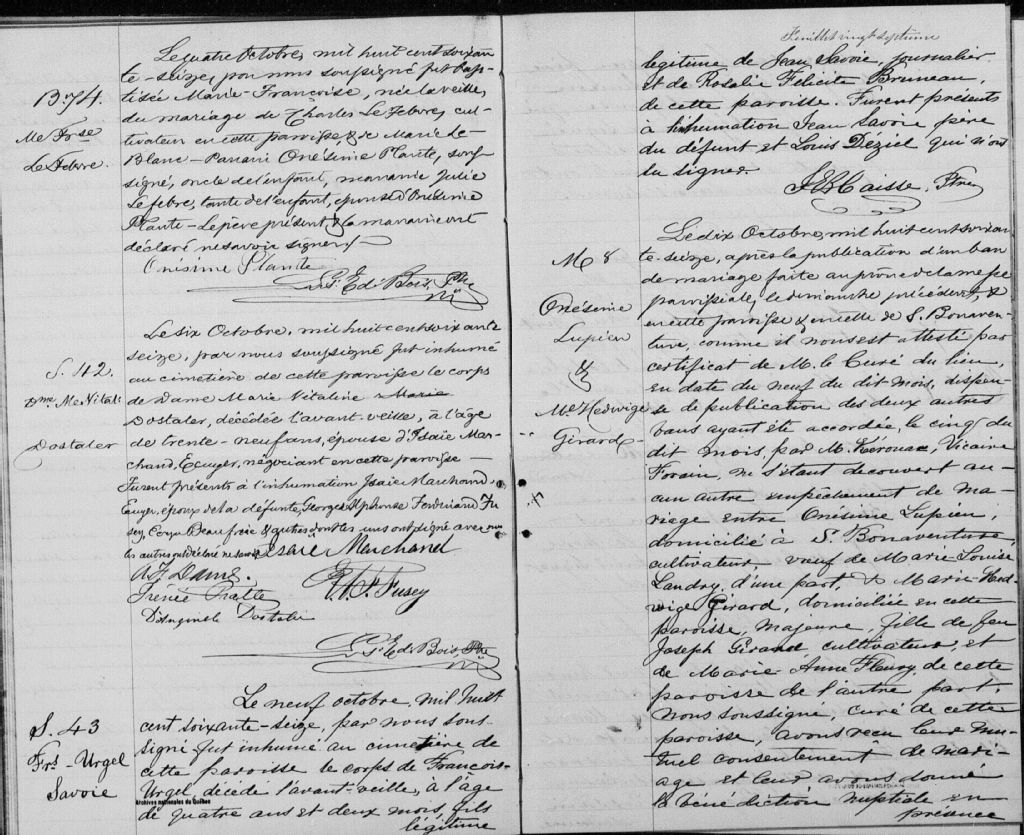 B. 74.
Me Frse
LeFebvre.
Le quatre Octobre, mil huit cent soixan
te-seize, par nous soussigné fut bap-
tisée Marie-Françoise, née la veille,
du mariage de Charles Lefebvre, cul-
tivateur en cette paroisse, & de Marie Le-
Blanc - Parrain Onésime Plante, sous-
signé, oncle de l'enfant, marraine Julie
Lefebre, tante de l'enfant, épouse d'Onésime
Plante - Le père présent, & la marraine ont
déclaré ne savoir signer.
Onésime Plante
Ptre
S. 42.
Dme Me Vitali
Dostaler
Le six Octobre, mil huit cent soixante
seize, par nous soussigné fut inhumé
au cimetière de cette paroisse le corps
de Dame Marie Vitaline Marie
Dostaler, décédée l'avant-veille, à l'âge
de trente-neuf ans, épouse d'Isaïe Mar-
chand, Ecuyer, négociant en cette paroisse -
Furent présents à l'inhumation Isaïe Marchand,
Ecuyer, époux de la défunte, Georges Alphonse Ferdinand Fu
sey, & autres dont les uns ont signé avec nous
les autres ont déclaré ne savoir
Isaïe Marchand
Fusey
Dostaler
Ptre
S. 43
Frs-Urgel
Savoie
Le neuf octobre, mil huit
cent soixante-seize, par nous sous-
signé fut inhumé au cimetière de
cette paroisse le corps de François-
Urgel, décédé l'avant-veille, à l'âge
de quatre ans et deux mois, fils
légitime
Archives nationales du Québec
Feuillet vingt septième
légitime de Jean Savoie, journalier
et de Rosalie Félicité Bruneau,
de cette paroisse. Furent présents
à l'inhumation Jean Savoie père
du défunt et Louis Déziel qui n'ont
su signer.
Ptre
M 8
Onésime
Lupien
&
Me Hedwige
Girard
Le dix Octobre, mil huit cent soixan
te-seize, après la publication d'un ban
de mariage faite au prône de la messe
paroissiale, le dimanche précédent, &
en cette paroisse & en celle de S. Bonaven-
ture, comme il nous est attesté par
certificat de M. le Curé du lieu,
en date du neuf du dit mois, dispen-
se de publication des deux autres
bans ayant été accordée, le cinq du
dit mois, par M. Kérouac, Vicaire
Forain, ne s'étant découvert au-
cun autre empêchement de ma-
riage entre Onésime Lupien,
domicilié à S. Bonaventure,
cultivateur, veuf de Marie-Louise
Landry, d'une part, & Marie-Hed-
vige Girard, domiciliée en cette
paroisse, majeure, fille de feu
Joseph Girard, cultivateur, et
de Marie-Anne Fleury, de cette
paroisse de l'autre part,
nous soussigné, curé de cette
paroisse, avons reçu leur mu-
tuel consentement de mari-
age et leur avons donné
la bénédiction nuptiale en
présence